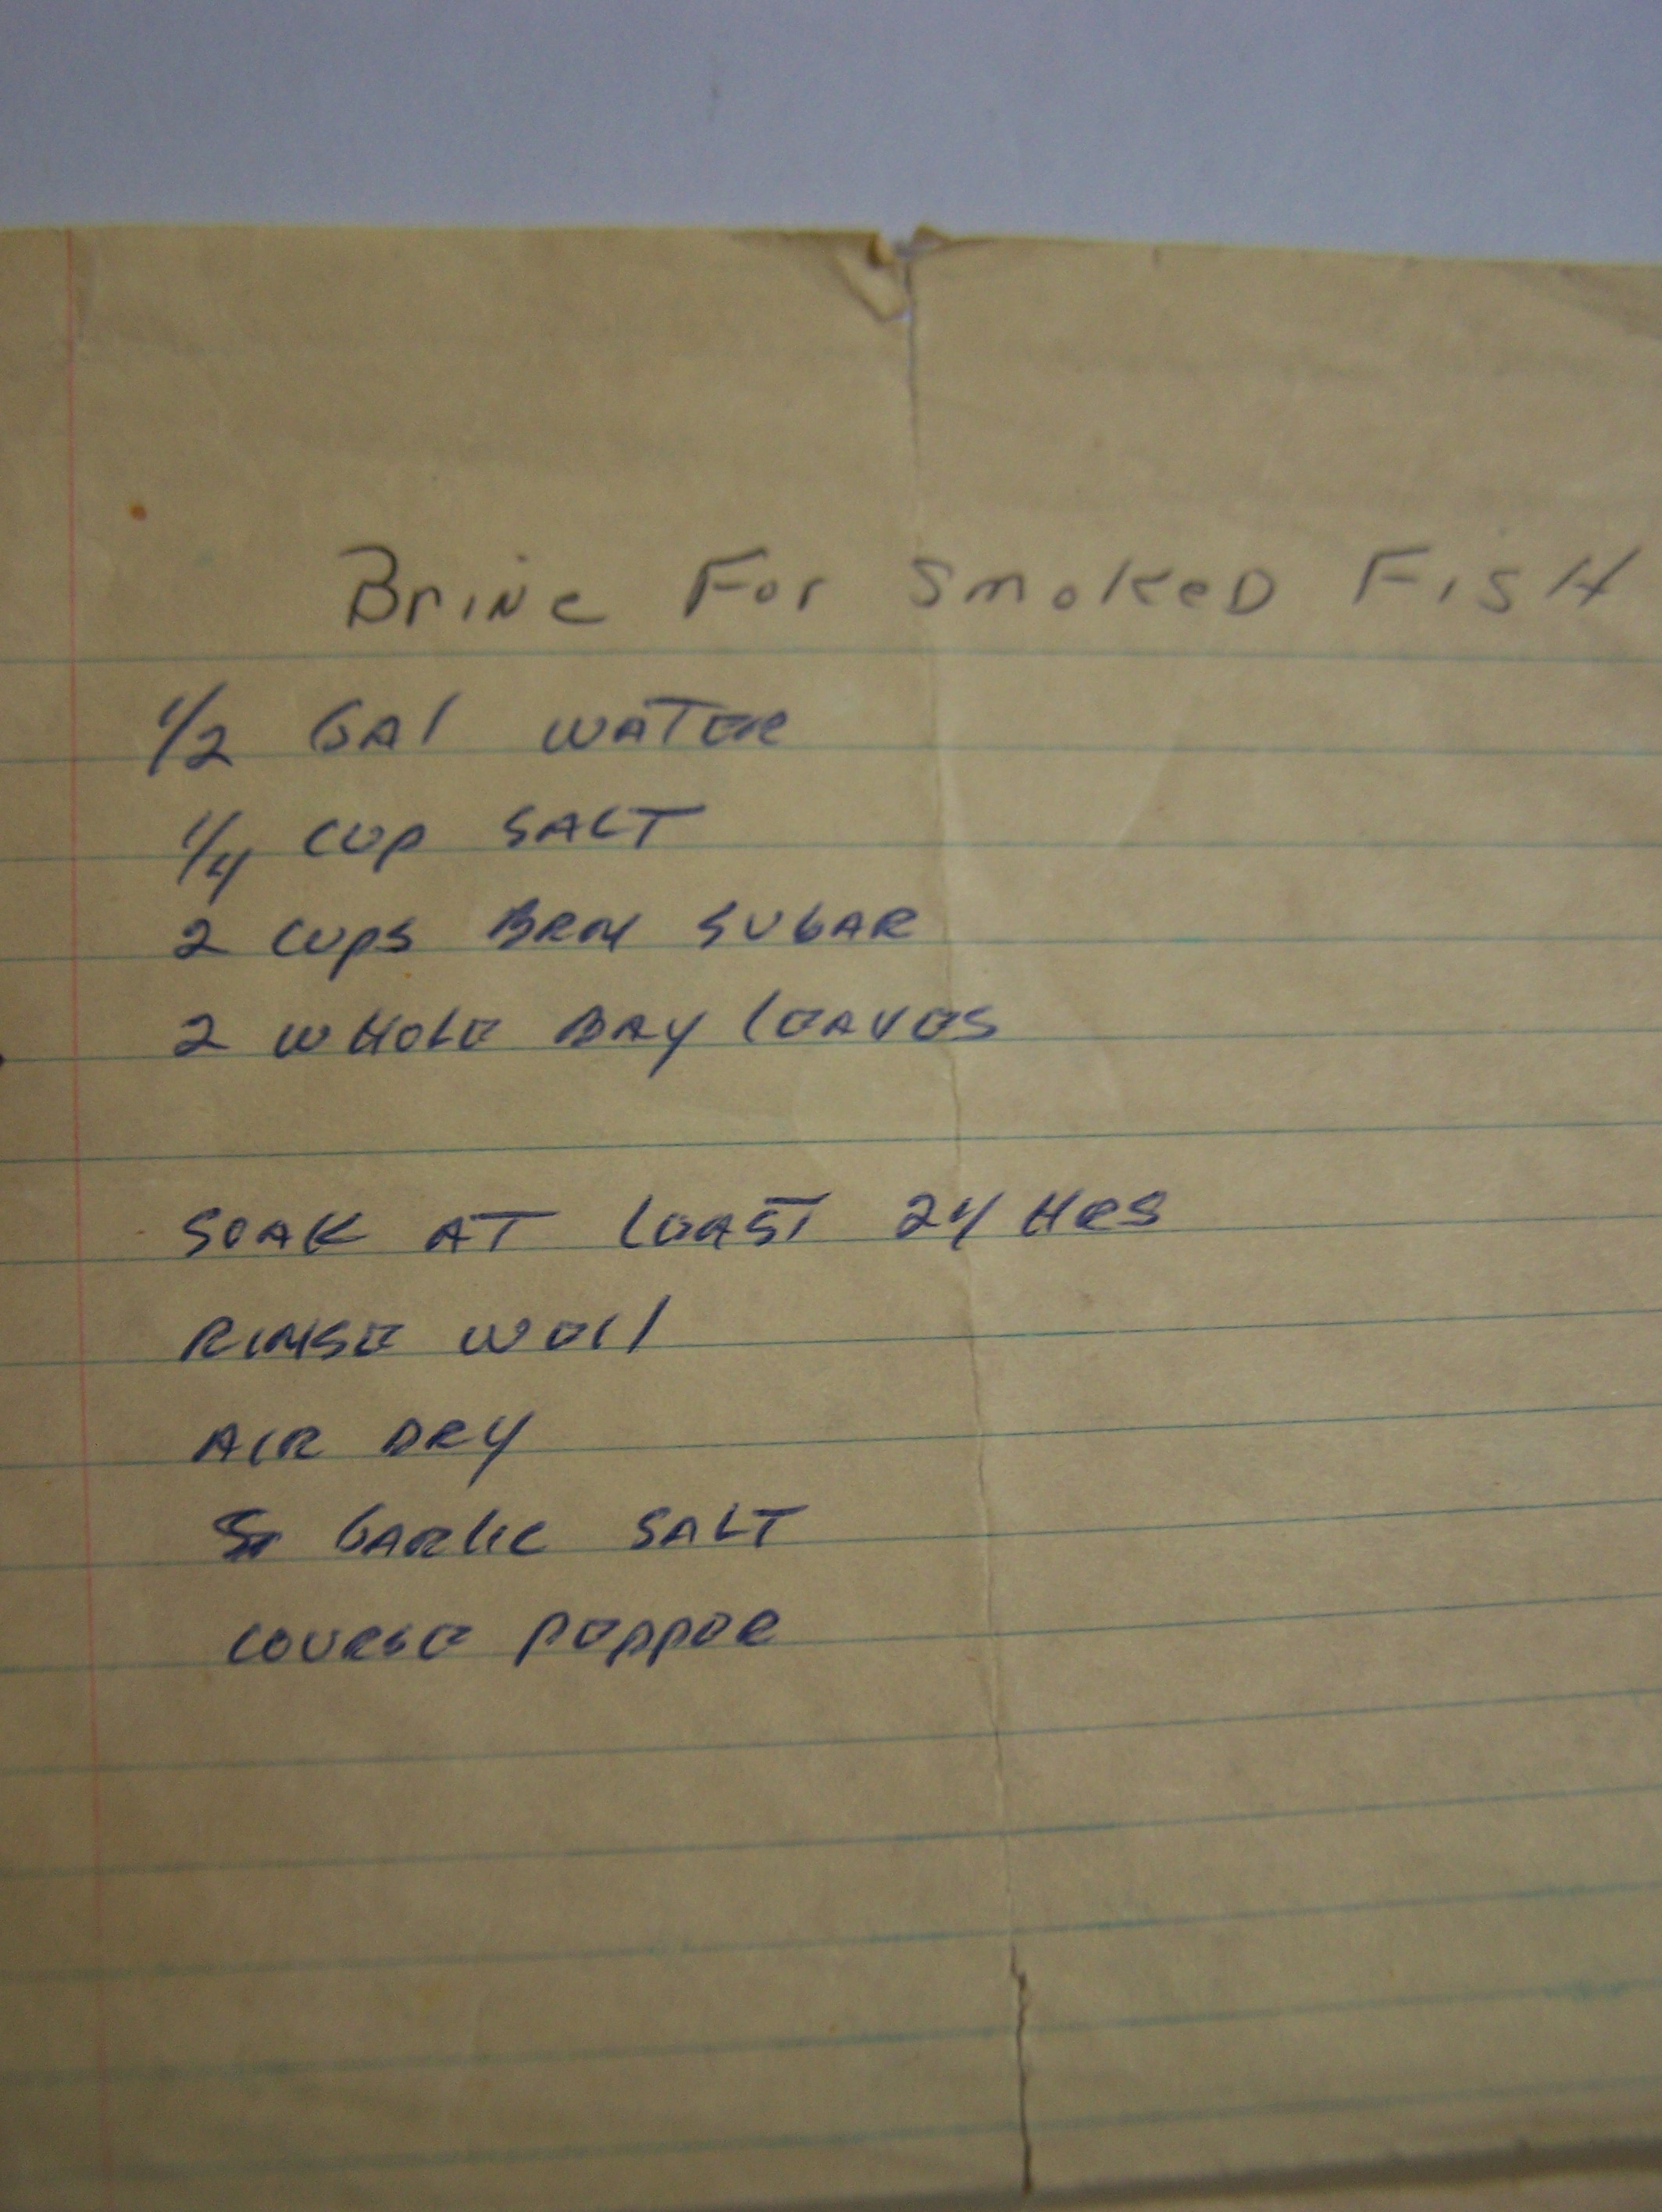 Brine For Smoked Fish
1/2 GAl WATER
1/4 CUP SALT
2 CUPS BRN SUGAR
2 WHOLE BAY LEAVES
SOAK AT LEAST 24 HRS
RINSE WEll
AIR DRY
GARLIC SALT
COURSE PEPPER